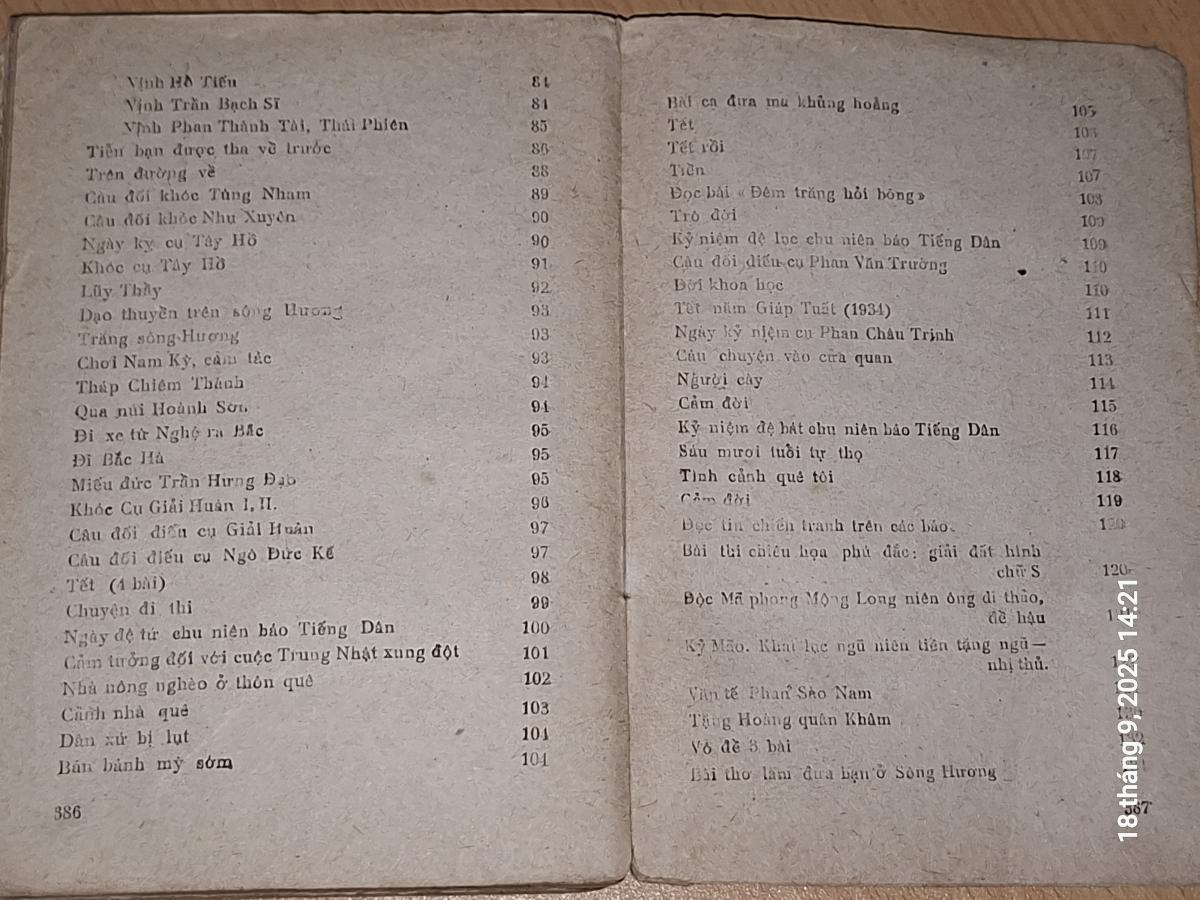 Vịnh Hồ Tiếu 84
Vịnh Trần Bạch Sĩ 84
Vịnh Phan Thành Tài, Thái Phiên 85
Tiễn bạn được tha về trước 86
Trên đường về 88
Câu đối khóc Tùng Nham 89
Câu đối khóc Như Xuyên 90
Ngày kỵ cụ Tây Hồ 90
Khóc cụ Tây Hồ 91
Lũy Thầy 92
Dạo thuyền trên sông Hương 93
Trăng sông Hương 93
Chơi Nam Kỳ, cảm tác 93
Tháp Chiêm Thành 94
Qua núi Hoành Sơn 94
Đi xe từ Nghệ ra Bắc 95
Đi Bắc Hà 95
Miếu đức Trần Hưng Đạo 95
Khóc Cụ Giải Huân I, II. 96
Câu đối điếu cụ Giải Huân 97
Câu đối điếu cụ Ngô Đức Kế 97
Tết (4 bài) 98
Chuyện đi thi 99
Ngày đệ tứ chu niên báo Tiếng Dân 100
Cảm tưởng đối với cuộc Trung Nhật xung đột 101
Nhà nông nghèo ở thôn quê 102
Cảnh nhà quê 103
Dân xứ bị lụt 104
Bán bánh mỳ sớm 104
386
Bài ca đưa ma khủng hoảng 105
Tết
Tết rồi 107
Tiền 107
Đọc bài « Đêm trăng hỏi bóng » 108
Trò đời 109
Kỷ niệm đệ lục chu niên báo Tiếng Dân 109
Câu đối điếu cụ Phan Văn Trường 110
Đời khoa học 110
Tết năm Giáp Tuất (1934) 111
Ngày kỷ niệm cụ Phan Châu Trinh 112
Câu chuyện vào cửa quan 113
Người cày 114
Cảm đời 115
Kỷ niệm đệ bát chu niên báo Tiếng Dân 116
Sáu mươi tuổi tự thọ 117
Tình cảnh quê tôi 118
Cảm đời 119
Đọc tin chiến tranh trên các báo. 120
Bài thi chiêu họa phú đắc: giải đất hình
chữ S 120
Độc Mã phong Mộng Long niên ông di thảo,
đề hậu
Kỷ Mão. Khai lục ngũ niên tiền tặng ngũ—
nhị thủ.
Văn tế Phan Sào Nam
Tặng Hoàng quân Khâm
Vô đề 3 bài
Bài thơ làm đưa bạn ở Sông Hương
387
18 tháng 9, 2025 14:21